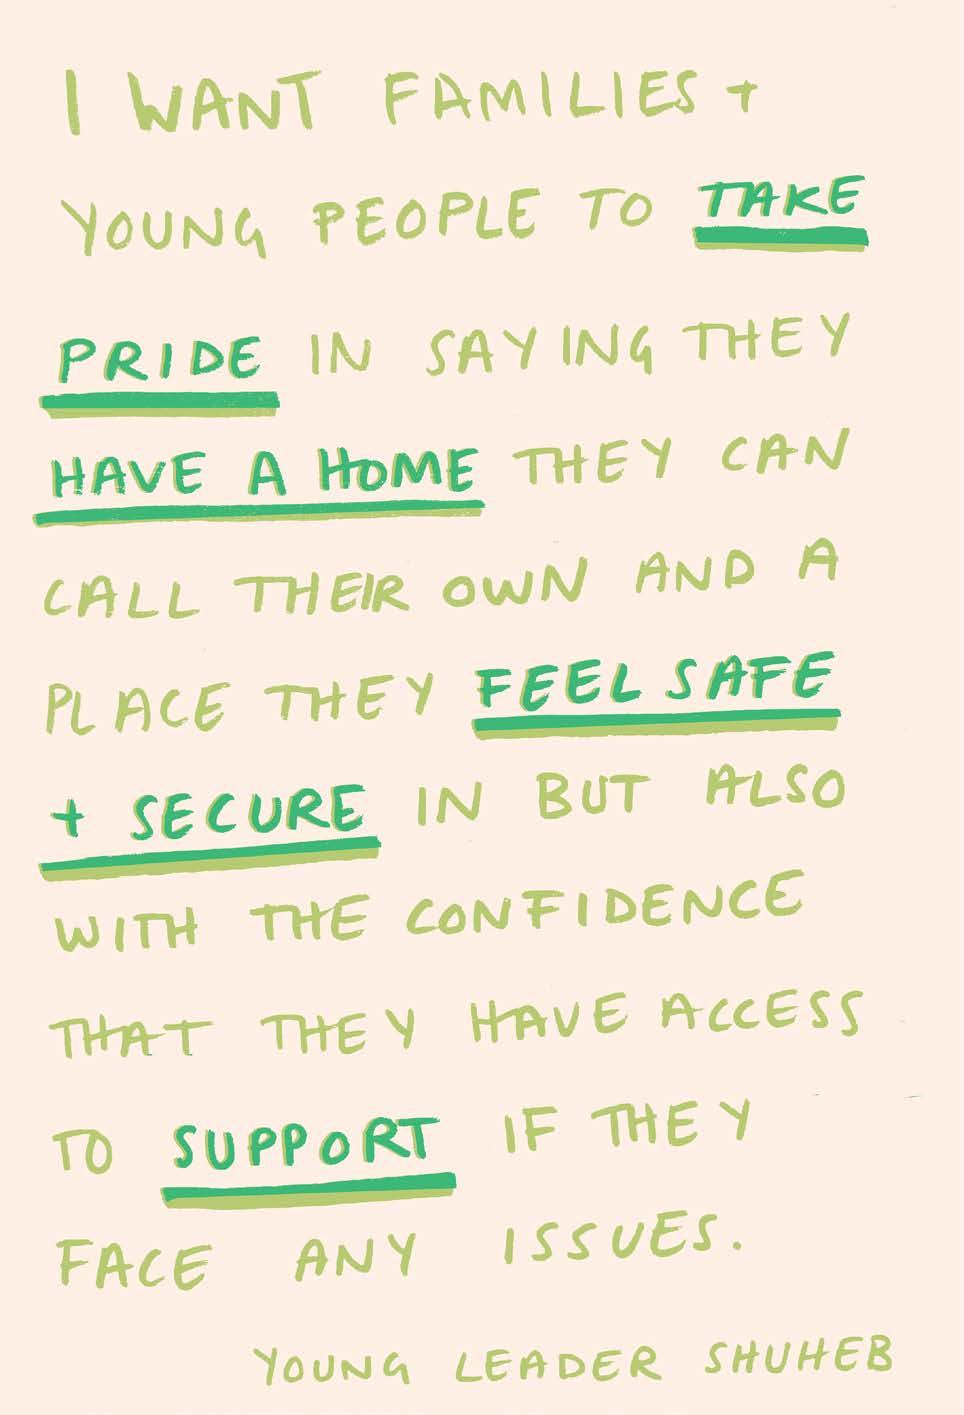 I WANT FAMILIES +
YOUNG PEOPLE TO TAKE
PRIDE IN SAYING THEY
HAVE A HOME THEY CAN
CALL THEIR OWN AND A
PLACE THEY FEEL SAFE
+ SECURE IN BUT ALSO
WITH THE CONFIDENCE
THAT THEY HAVE ACCESS
TO SUPPORT IF THEY
FACE ANY ISSUES.
YOUNG LEADER SHUHEB